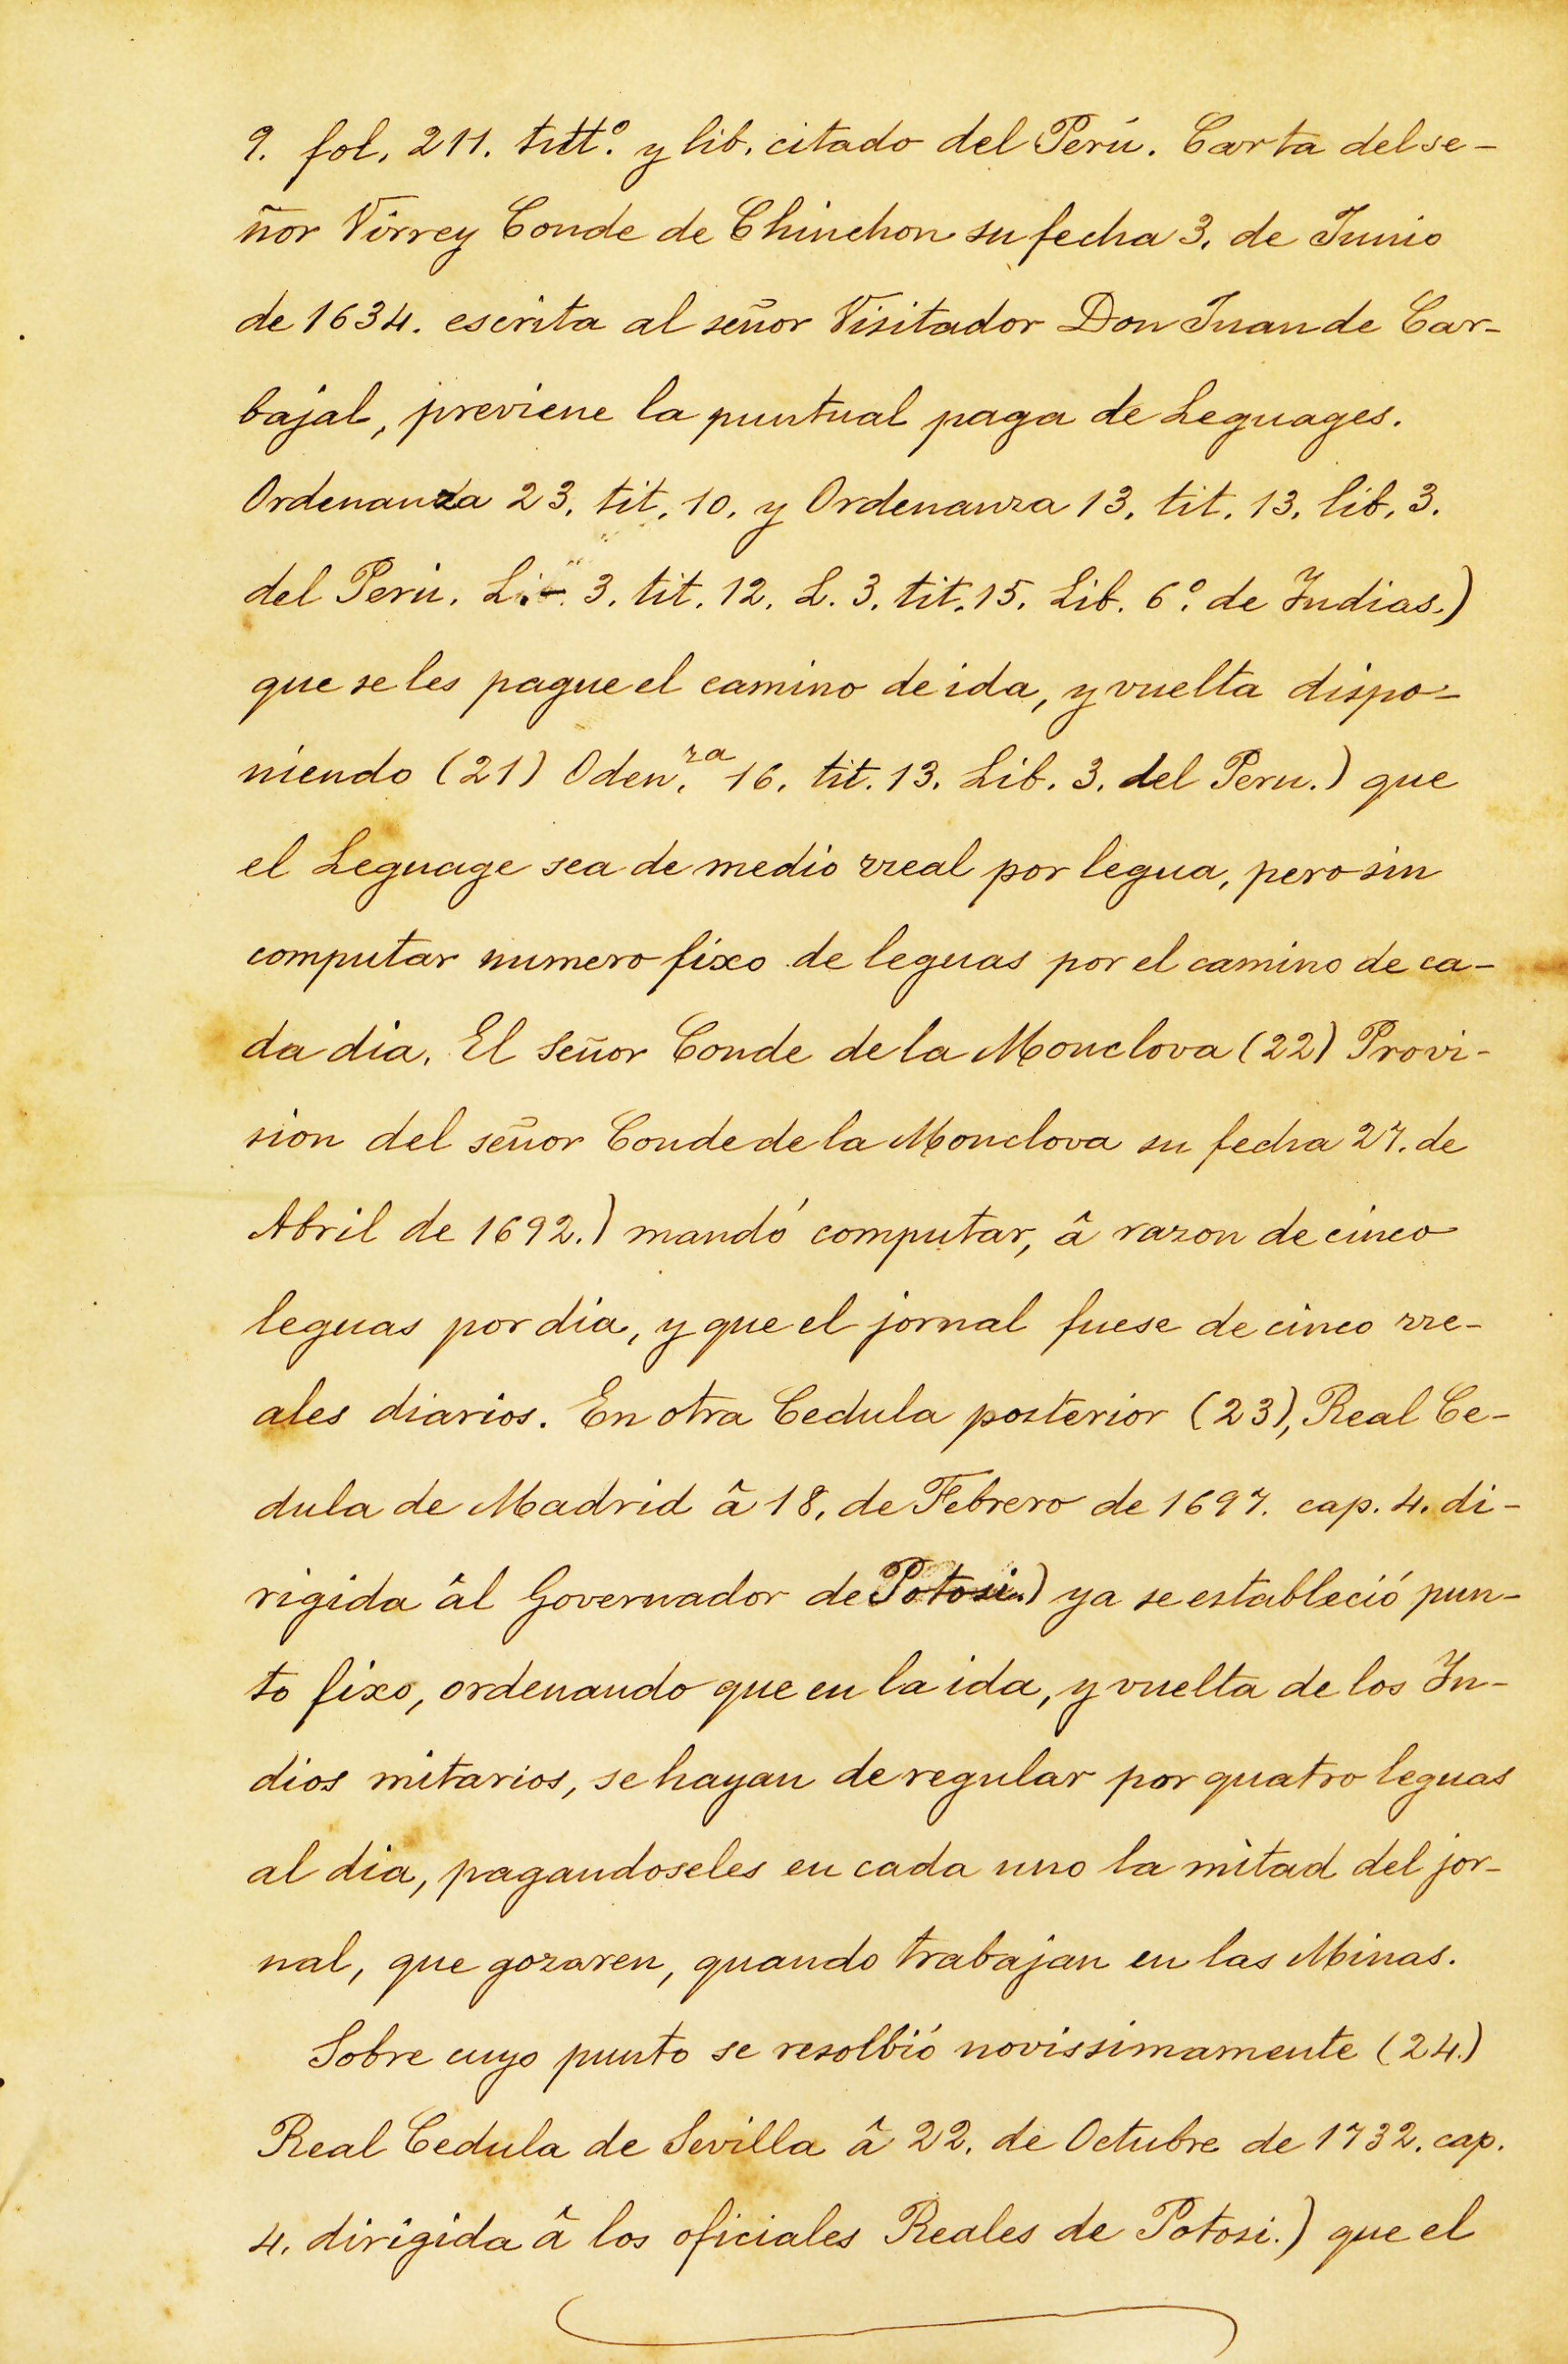 9. fol. 211. titt.º y lib. citado del Perú. Carta del se-
ñor Virrey Conde de Chinchon su fecha 3. de Junio
de 1634. escrita al señor Visitador Don Juan de Car-
bajal, previene la puntual paga de Leguages.
Ordenanza 23. tit. 10. y Ordenanza 13. tit. 13. lib. 3.
del Perú. L. 3. tit. 12. L. 3. tit. 15. Lib. 6º. de Indias.)
que se les pague el camino de ida, y vuelta dispo-
niendo (21) Oden.za 16. tit. 13. Lib. 3. del Peru.) que
el Leguage sea de medio rreal por legua, pero sin
computar numero fixo de leguas por el camino de ca-
da dia. El Señor Conde de la Monclova (22) Provi-
sion del señor Conde de la Monclova su fecha 27. de
Abril de 1692.) mandó computar, â razon de cinco
leguas por dia, y que el jornal fuese de cinco rre-
ales diarios. En otra Cedula posterior (23), Real Ce-
dula de Madrid â 18. de Febrero de 1697. cap. 4. di-
rigida âl Governador de Potosi.) ya se estableció pun-
to fixo, ordenando que en la ida, y vuelta de los In-
dios mitarios, se hayan de regular por quatro leguas
al dia, pagandoseles en cada uno la mitad del jor-
nal, que gozaren, quando trabajan en las Minas.
Sobre cuyo punto se resolbió novissimamente (24.)
Real Cedula de Sevilla â 22. de Octubre de 1732. cap.
4. dirigida â los oficiales Reales de Potosi.) que el